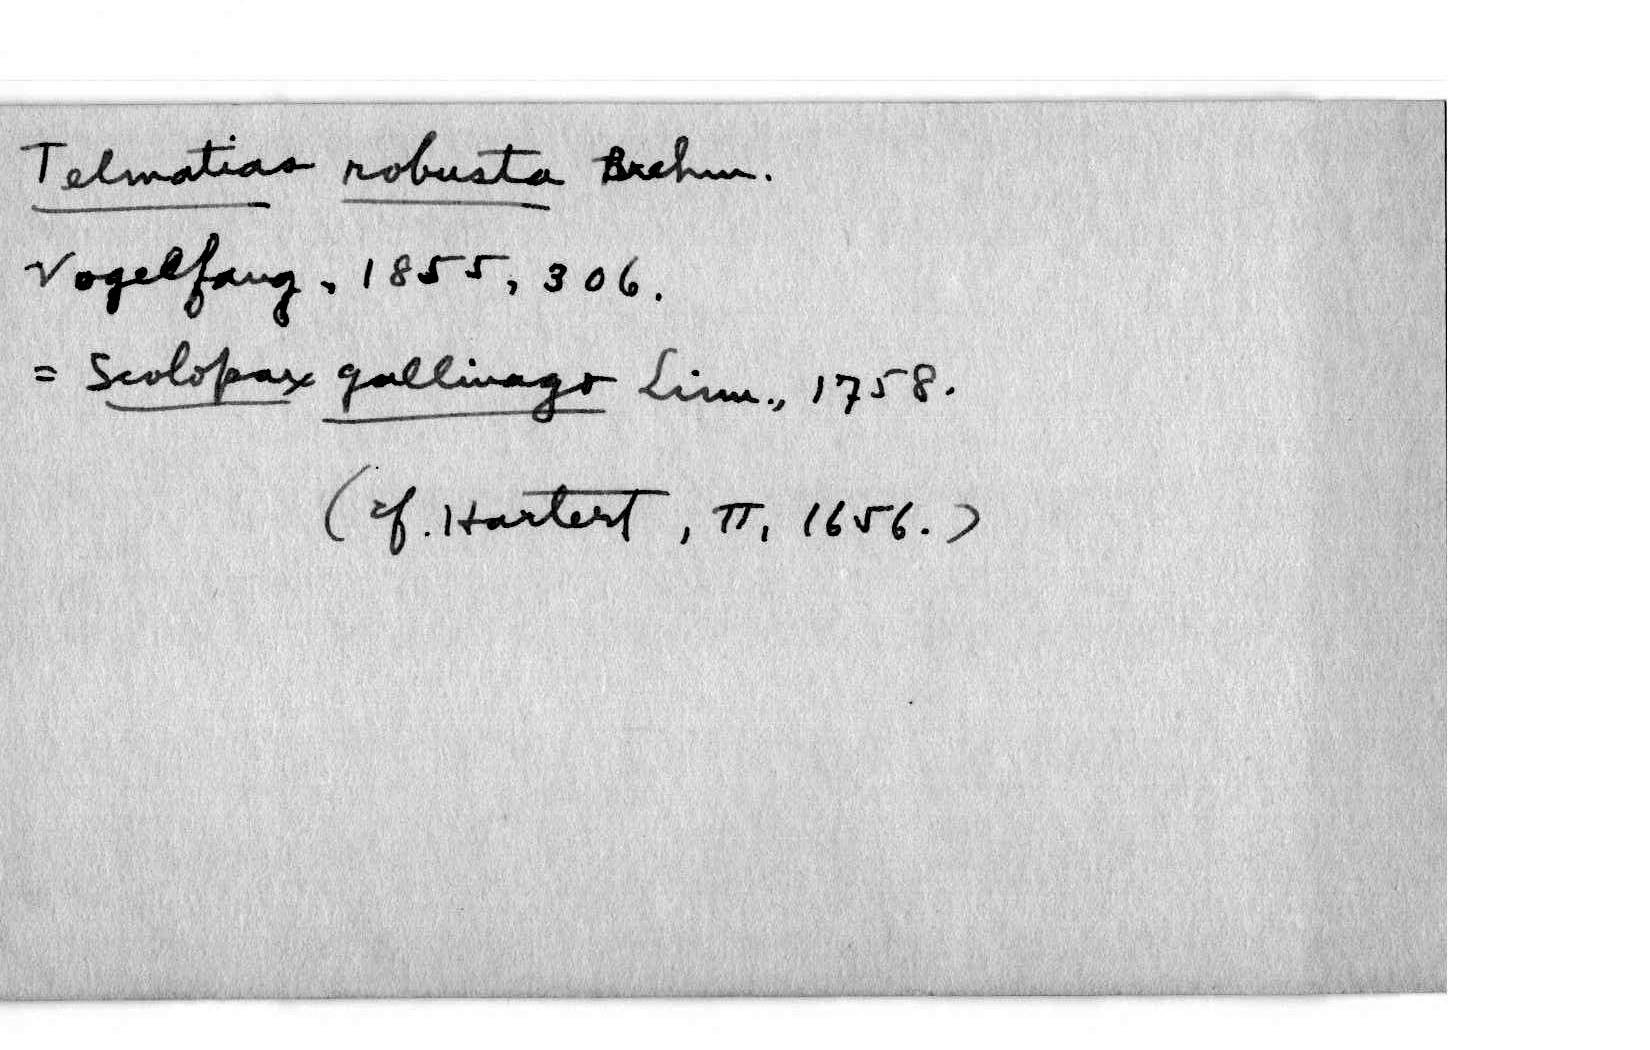 Telmatias robusta Brehm.
Vogelfang, 1855, 306.
= Scolopax gallinago Linn., 1758.
(cf. Hartert, II, 1656.)